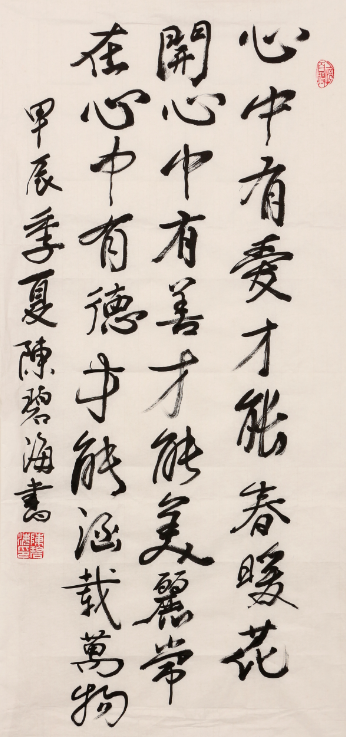 心中有愛才能春暖花
開心中有善才能美麗常
在心中有德才能涵載萬物
甲辰季夏陳碧海書